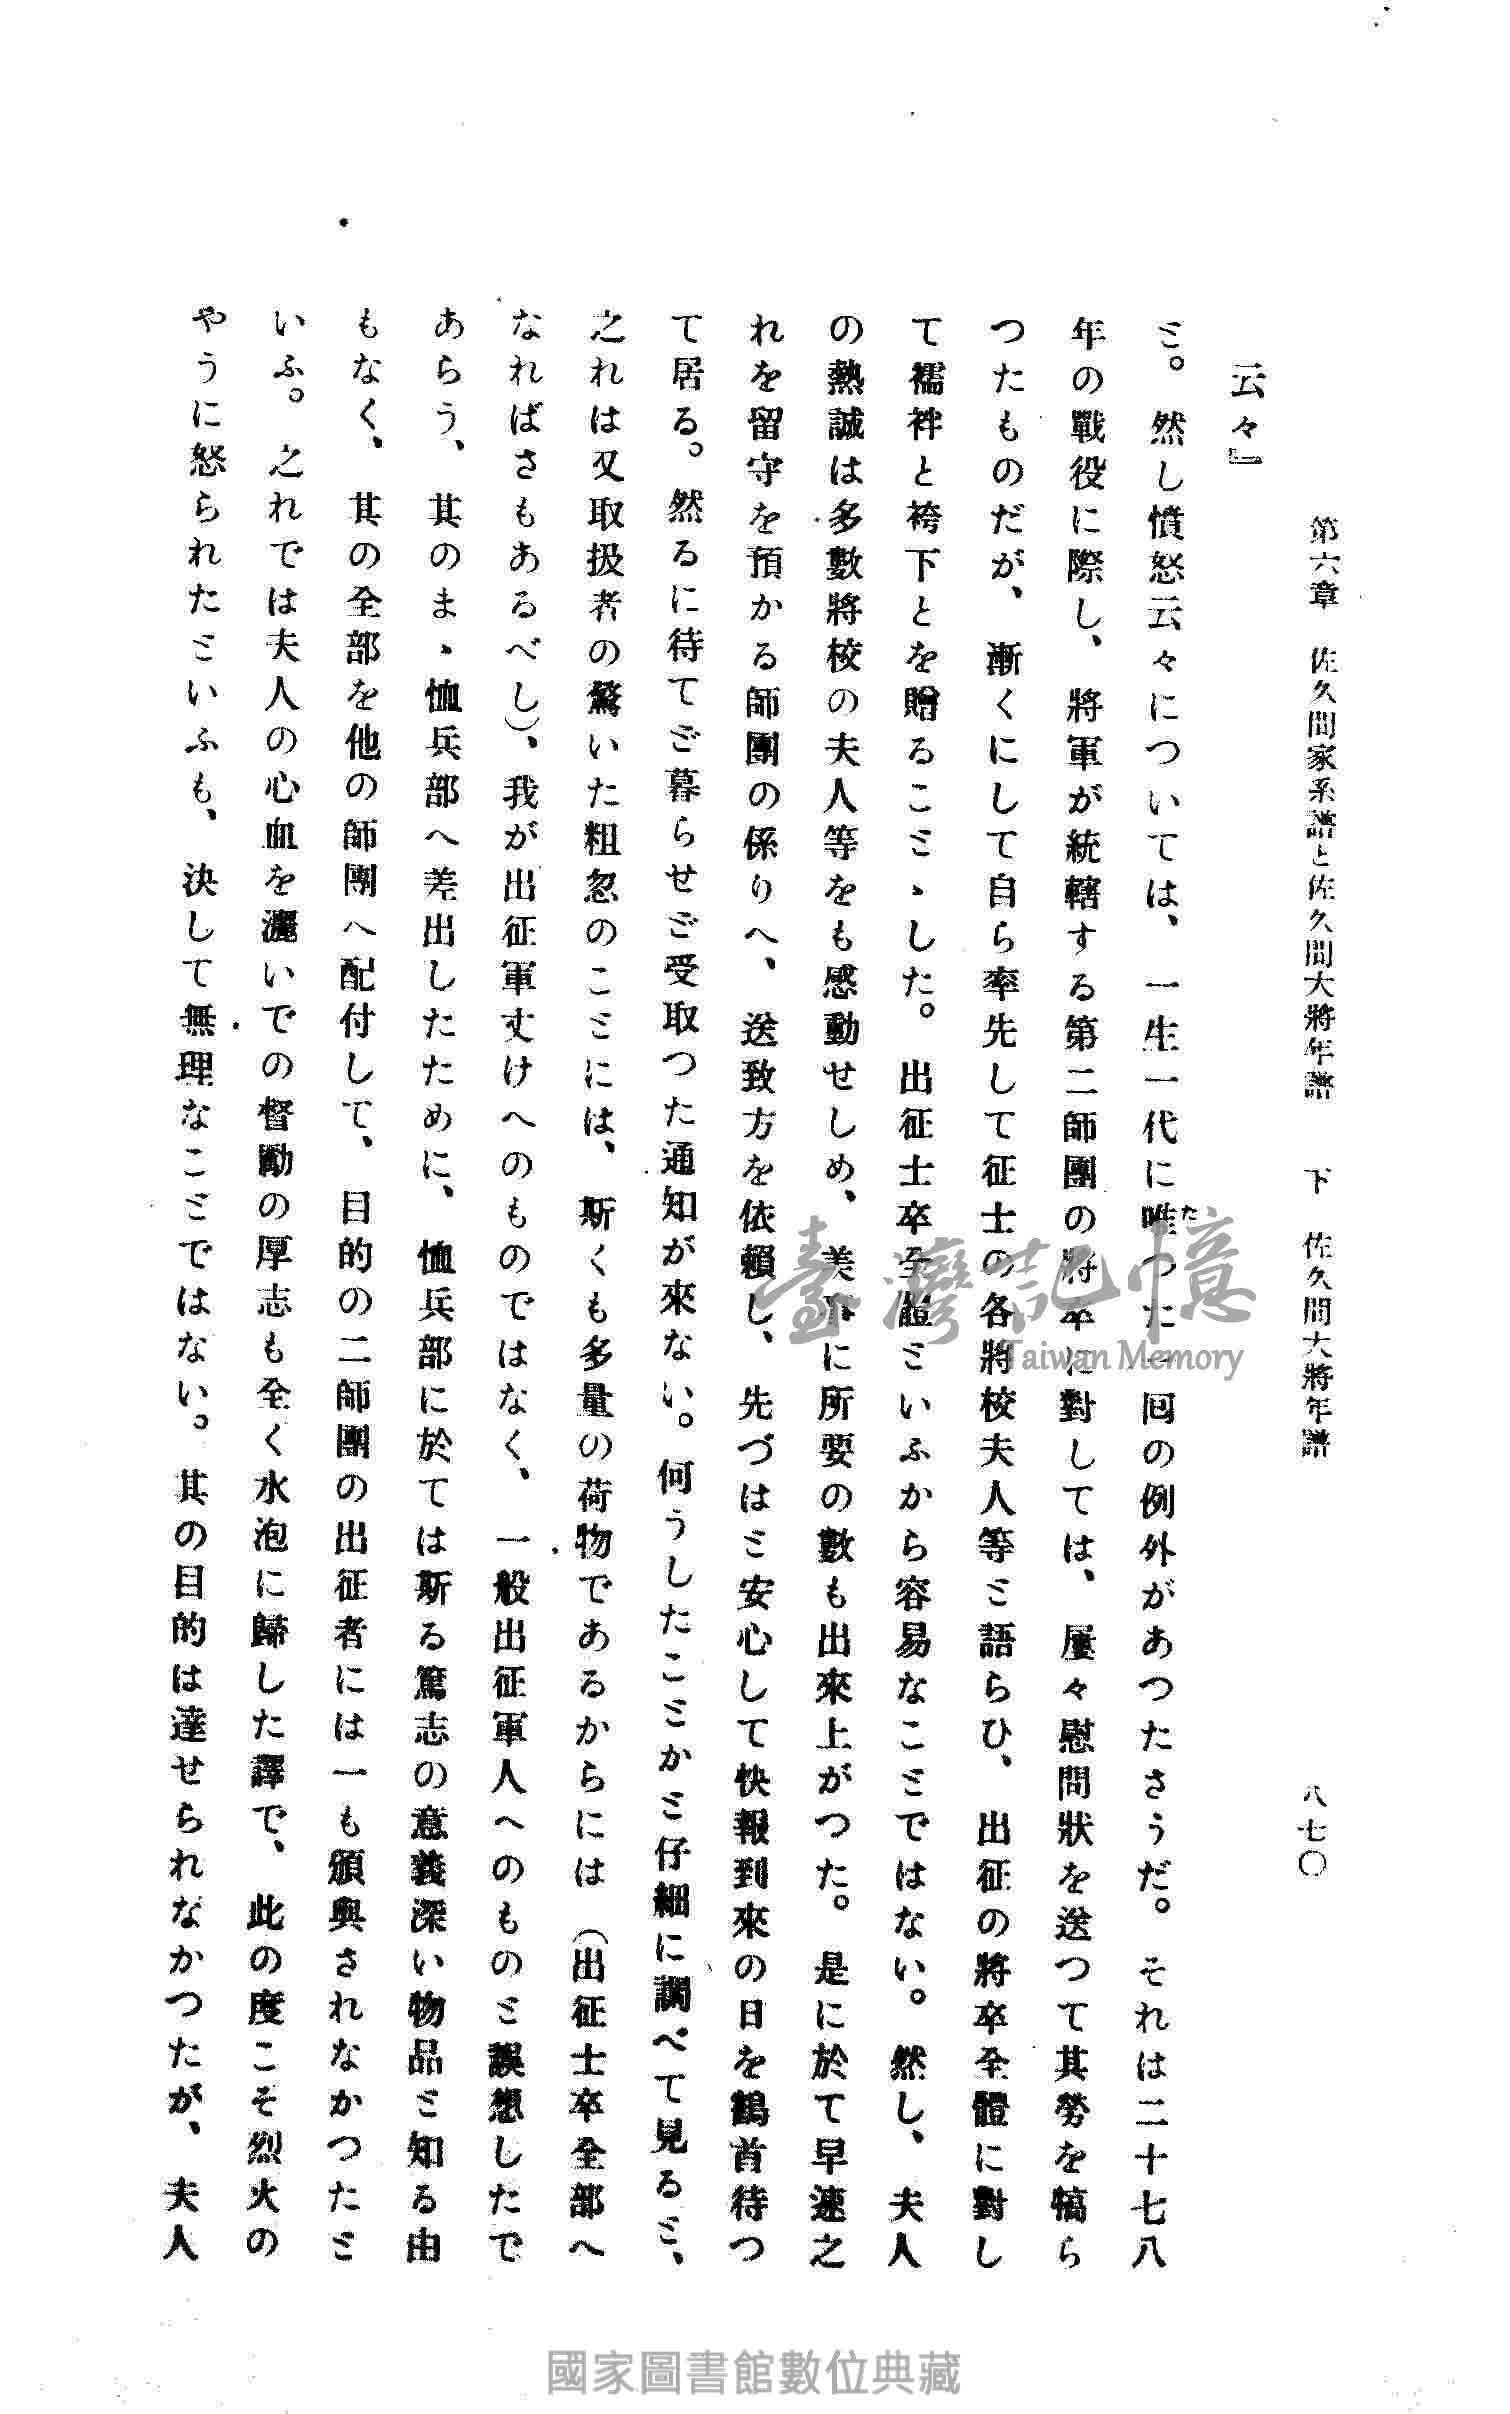 第六章　佐久間家系譜と佐久間大將年譜　下　佐久間大將年譜　八七〇
云々』
と。然し憤怒云々については、一生一代に唯つた一回の例外があつたさうだ。それは二十七八
年の戰役に際し、將軍が統轄する第二師團の將卒に對しては、屢々慰問狀を送つて其勞を犒ら
つたものだが、漸くにして自ら率先して征士の各將校夫人等と語らひ、出征の將卒全體に對し
て襦袢と袴下とを贈ること﹅した。出征士卒全體といふから容易なことではない。然し、夫人
の熱誠は多數將校の夫人等をも感動せしめ、美事に所要の數も出來上がつた。是に於て早速之
れを留守を預かる師團の係りへ、送致方を依賴し、先づはと安心して快報到來の日を鶴首待つ
て居る。然るに待てど暮らせど受取つた通知が來ない。何うしたことかと仔細に調べて見ると、
之れは又取扱者の驚いた粗忽のことには、斯くも多量の荷物であるからには（出征士卒全部へ
なればさもあるべし）、我が出征軍丈けへのものではなく、一般出征軍人へのものと誤想したで
あらう、其のま﹅恤兵部へ差出したために、恤兵部に於ては斯る篤志の意義深い物品と知る由
もなく、其の全部を他の師團へ配付して、目的の二師團の出征者には一も頒與されなかつたと
いふ。之れでは夫人の心血を灑いでの督勵の厚志も全く水泡に歸した譯で、此の度こそ烈火の
やうに怒られたといふも、決して無理なことではない。其の目的は達せられなかつたが、夫人
た
臺灣記憶
Taiwan Memory
國家圖書館數位典藏